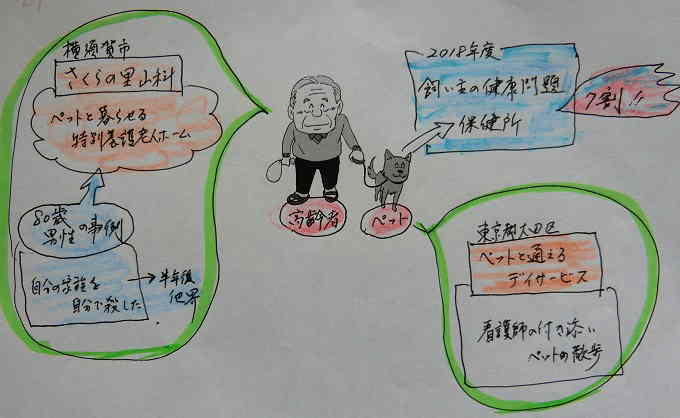 横須賀市
さくらの里山科
ペットと暮らせる
特別養護老人ホーム
80歳
男性の事例
自分の家族を
自分で殺した
半年後
他界
高齢者
ペット
2018年度
飼い主の健康問題
保健所
7割!!
東京都大田区
ペットと通える
デイサービス
看護師の付き添い
ペットの散歩